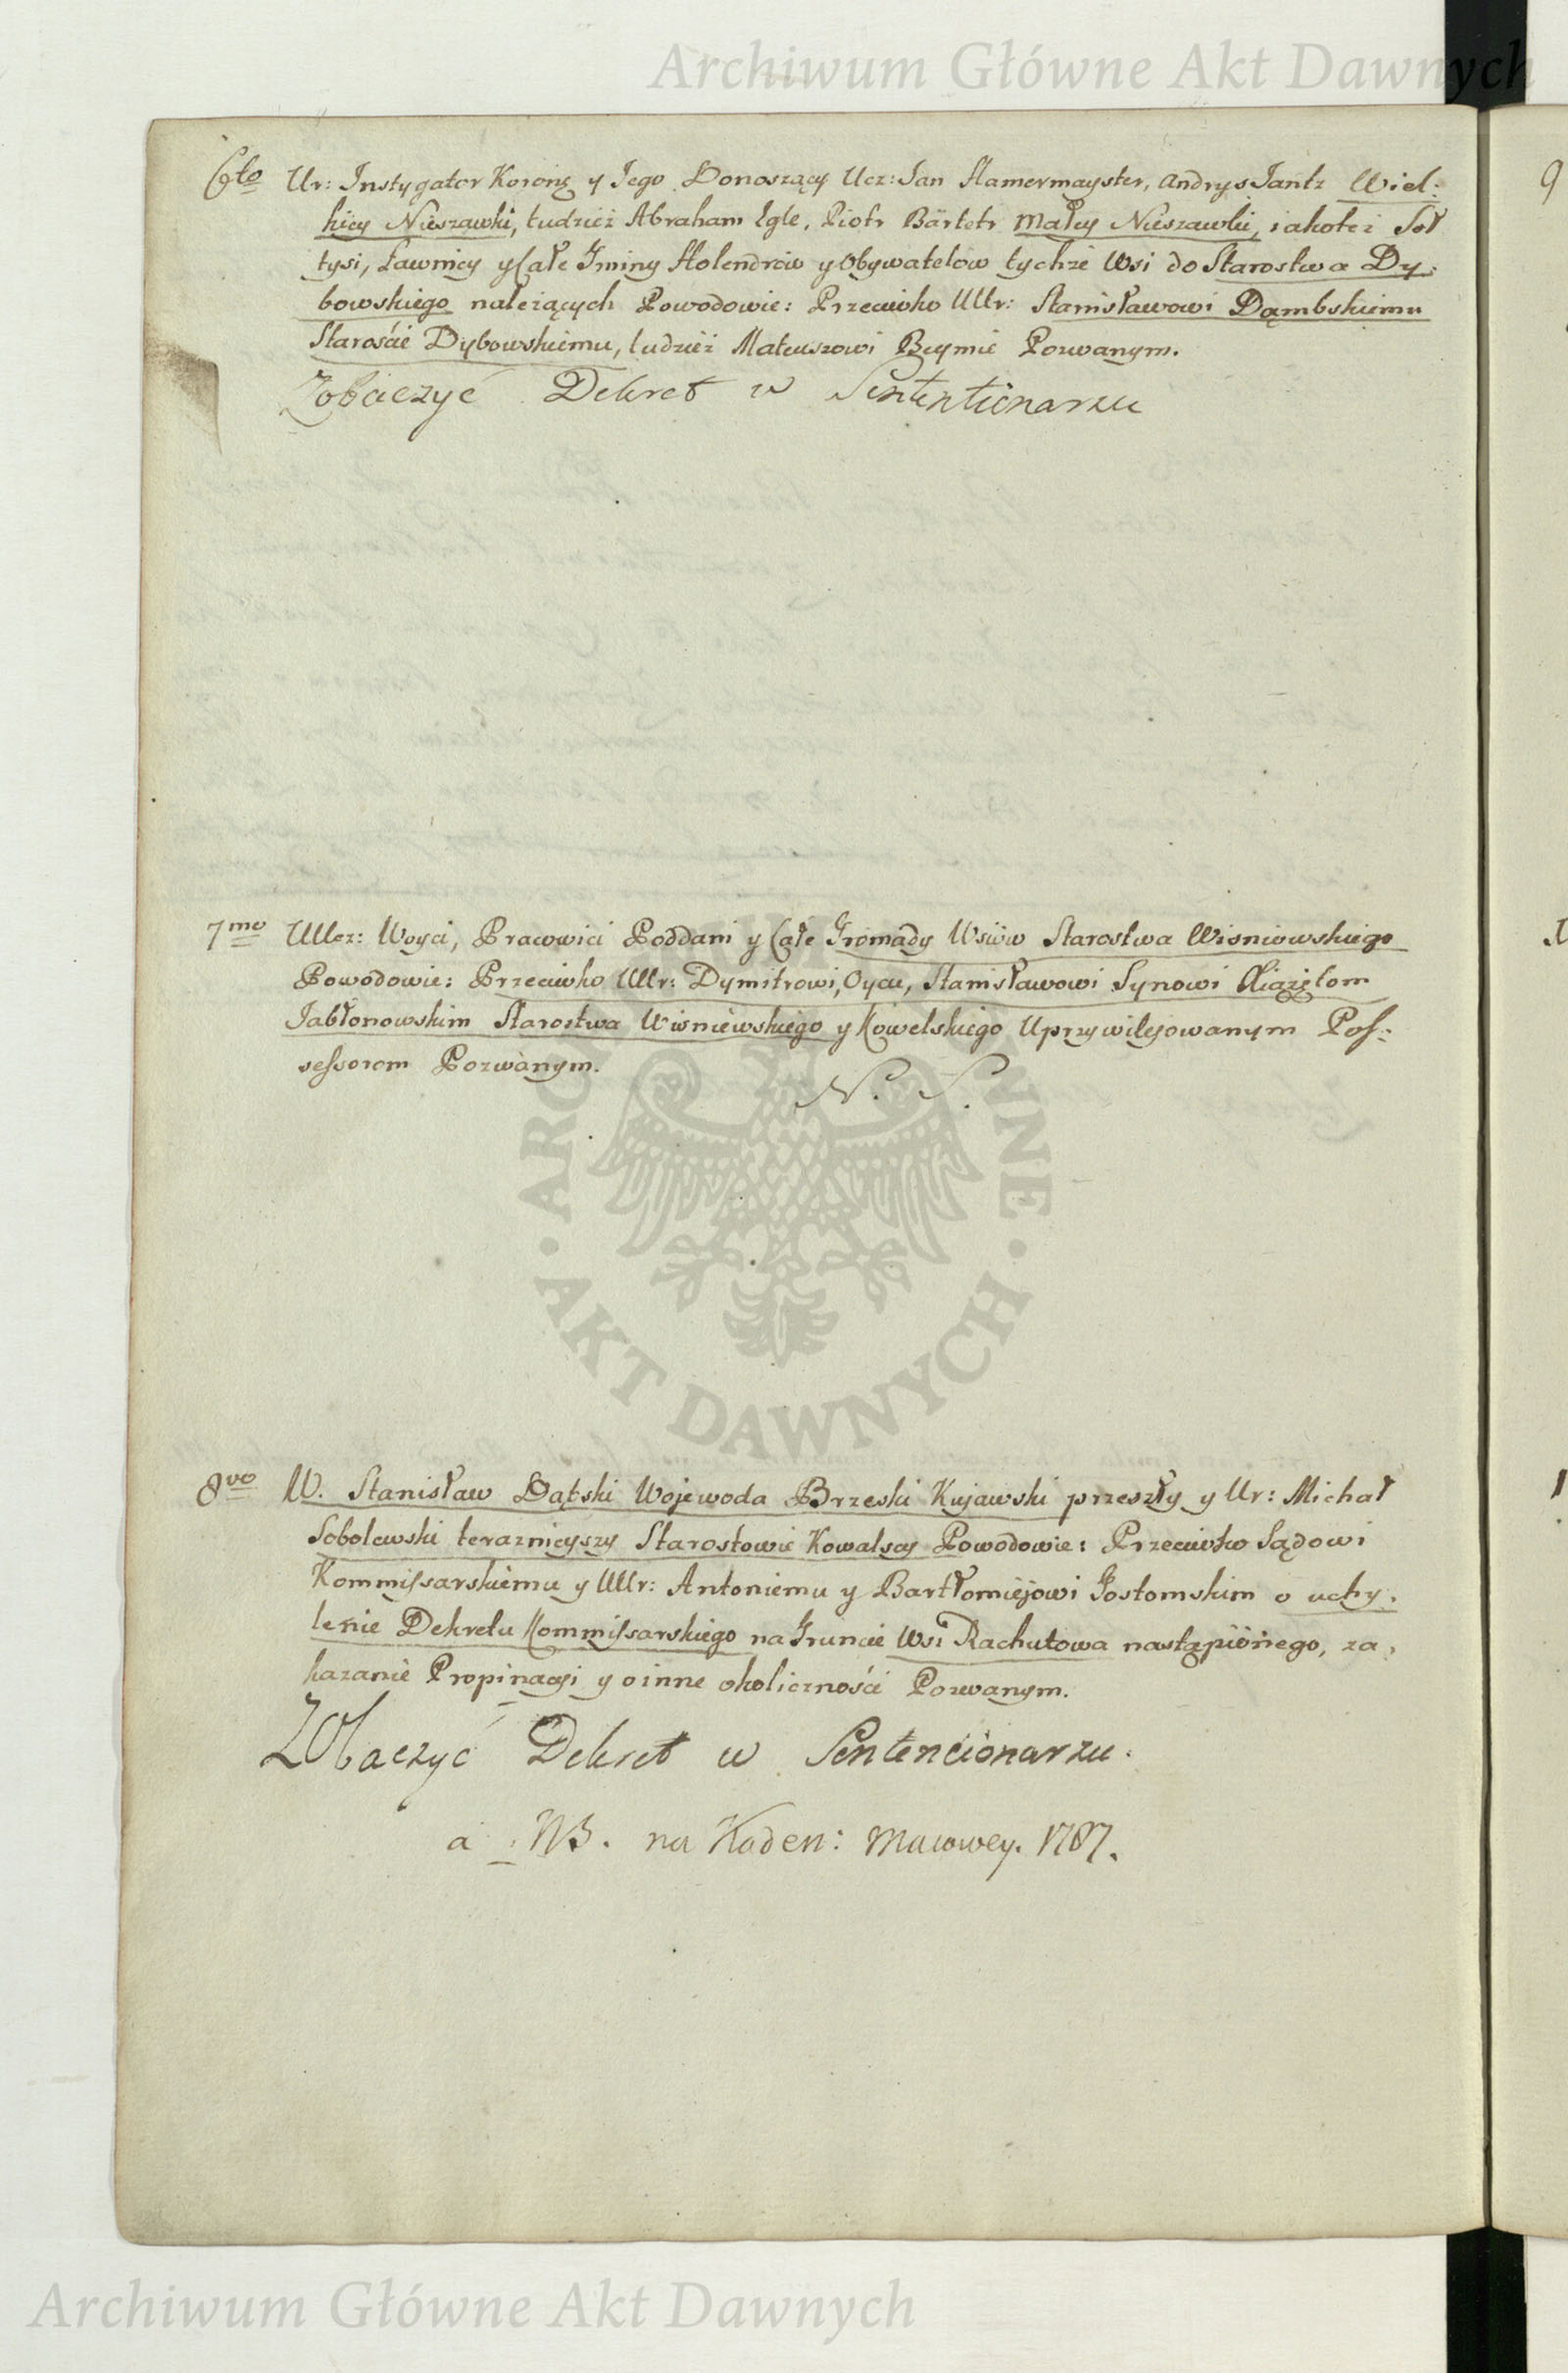 Archiwum Główne Akt Dawnych
6to Ur: Instygator Koronę y Jego Donoszący Ucz: Jan Hamermayster, Andrys Jantz Wiel:
kiey Nieszawki, tudzież Abraham Egle, Piotr Bärtetr Małey Nieszawki, jakoteż Soł
tysi, Ławnicy y Całe Gminy Holendrów y Obywatelów tychże Wsi do Starostwa Dy:
bowskiego należących Powodowie: Przeciwko UUr: Stanisławowi Dąmbskiemu
Staroście Dybowskiemu, tudzież Mateuszowi Beymie Pozwanym.
Zobaczyć Dekret w Sententionarzu
7mo UUcz: Woyci, Pracowici Poddani y Całe Gromady Wsiów Starostwa Wisniowskiego
Powodowie: Przeciwko UUr: Dymitrowi, Oycu, Stanisławowi Synowi Xiążętom
Jabłonowskim Starostwa Wisniewskiego y Kowelskiego Uprzywilejowanym Pos:
sessorom Pozwanym.
N. S.
8vo W. Stanisław Dąbski Wojewoda Brzeski Kujawski przeszły y Ur: Michał
Sobolewski teraznieyszy Starostowie Kowalscy Powodowie: Przeciwko Sądowi
Kommissarskiemu y UUr: Antoniemu y Bartłomiejowi Gostomskim o uchy:
lenie Dekretu Kommissarskiego na Gruncie Wsi Rachutowa nastąpiónego, za:
kazanie Propinacyi y o inne okoliczności Pozwanym.
Zobaczyć Dekret w Sentencionarzu.
a NB. na Kaden: Maiowey. 1787.
ARCHIWUM GŁÓWNE · AKT DAWNYCH ·
Archiwum Główne Akt Dawnych